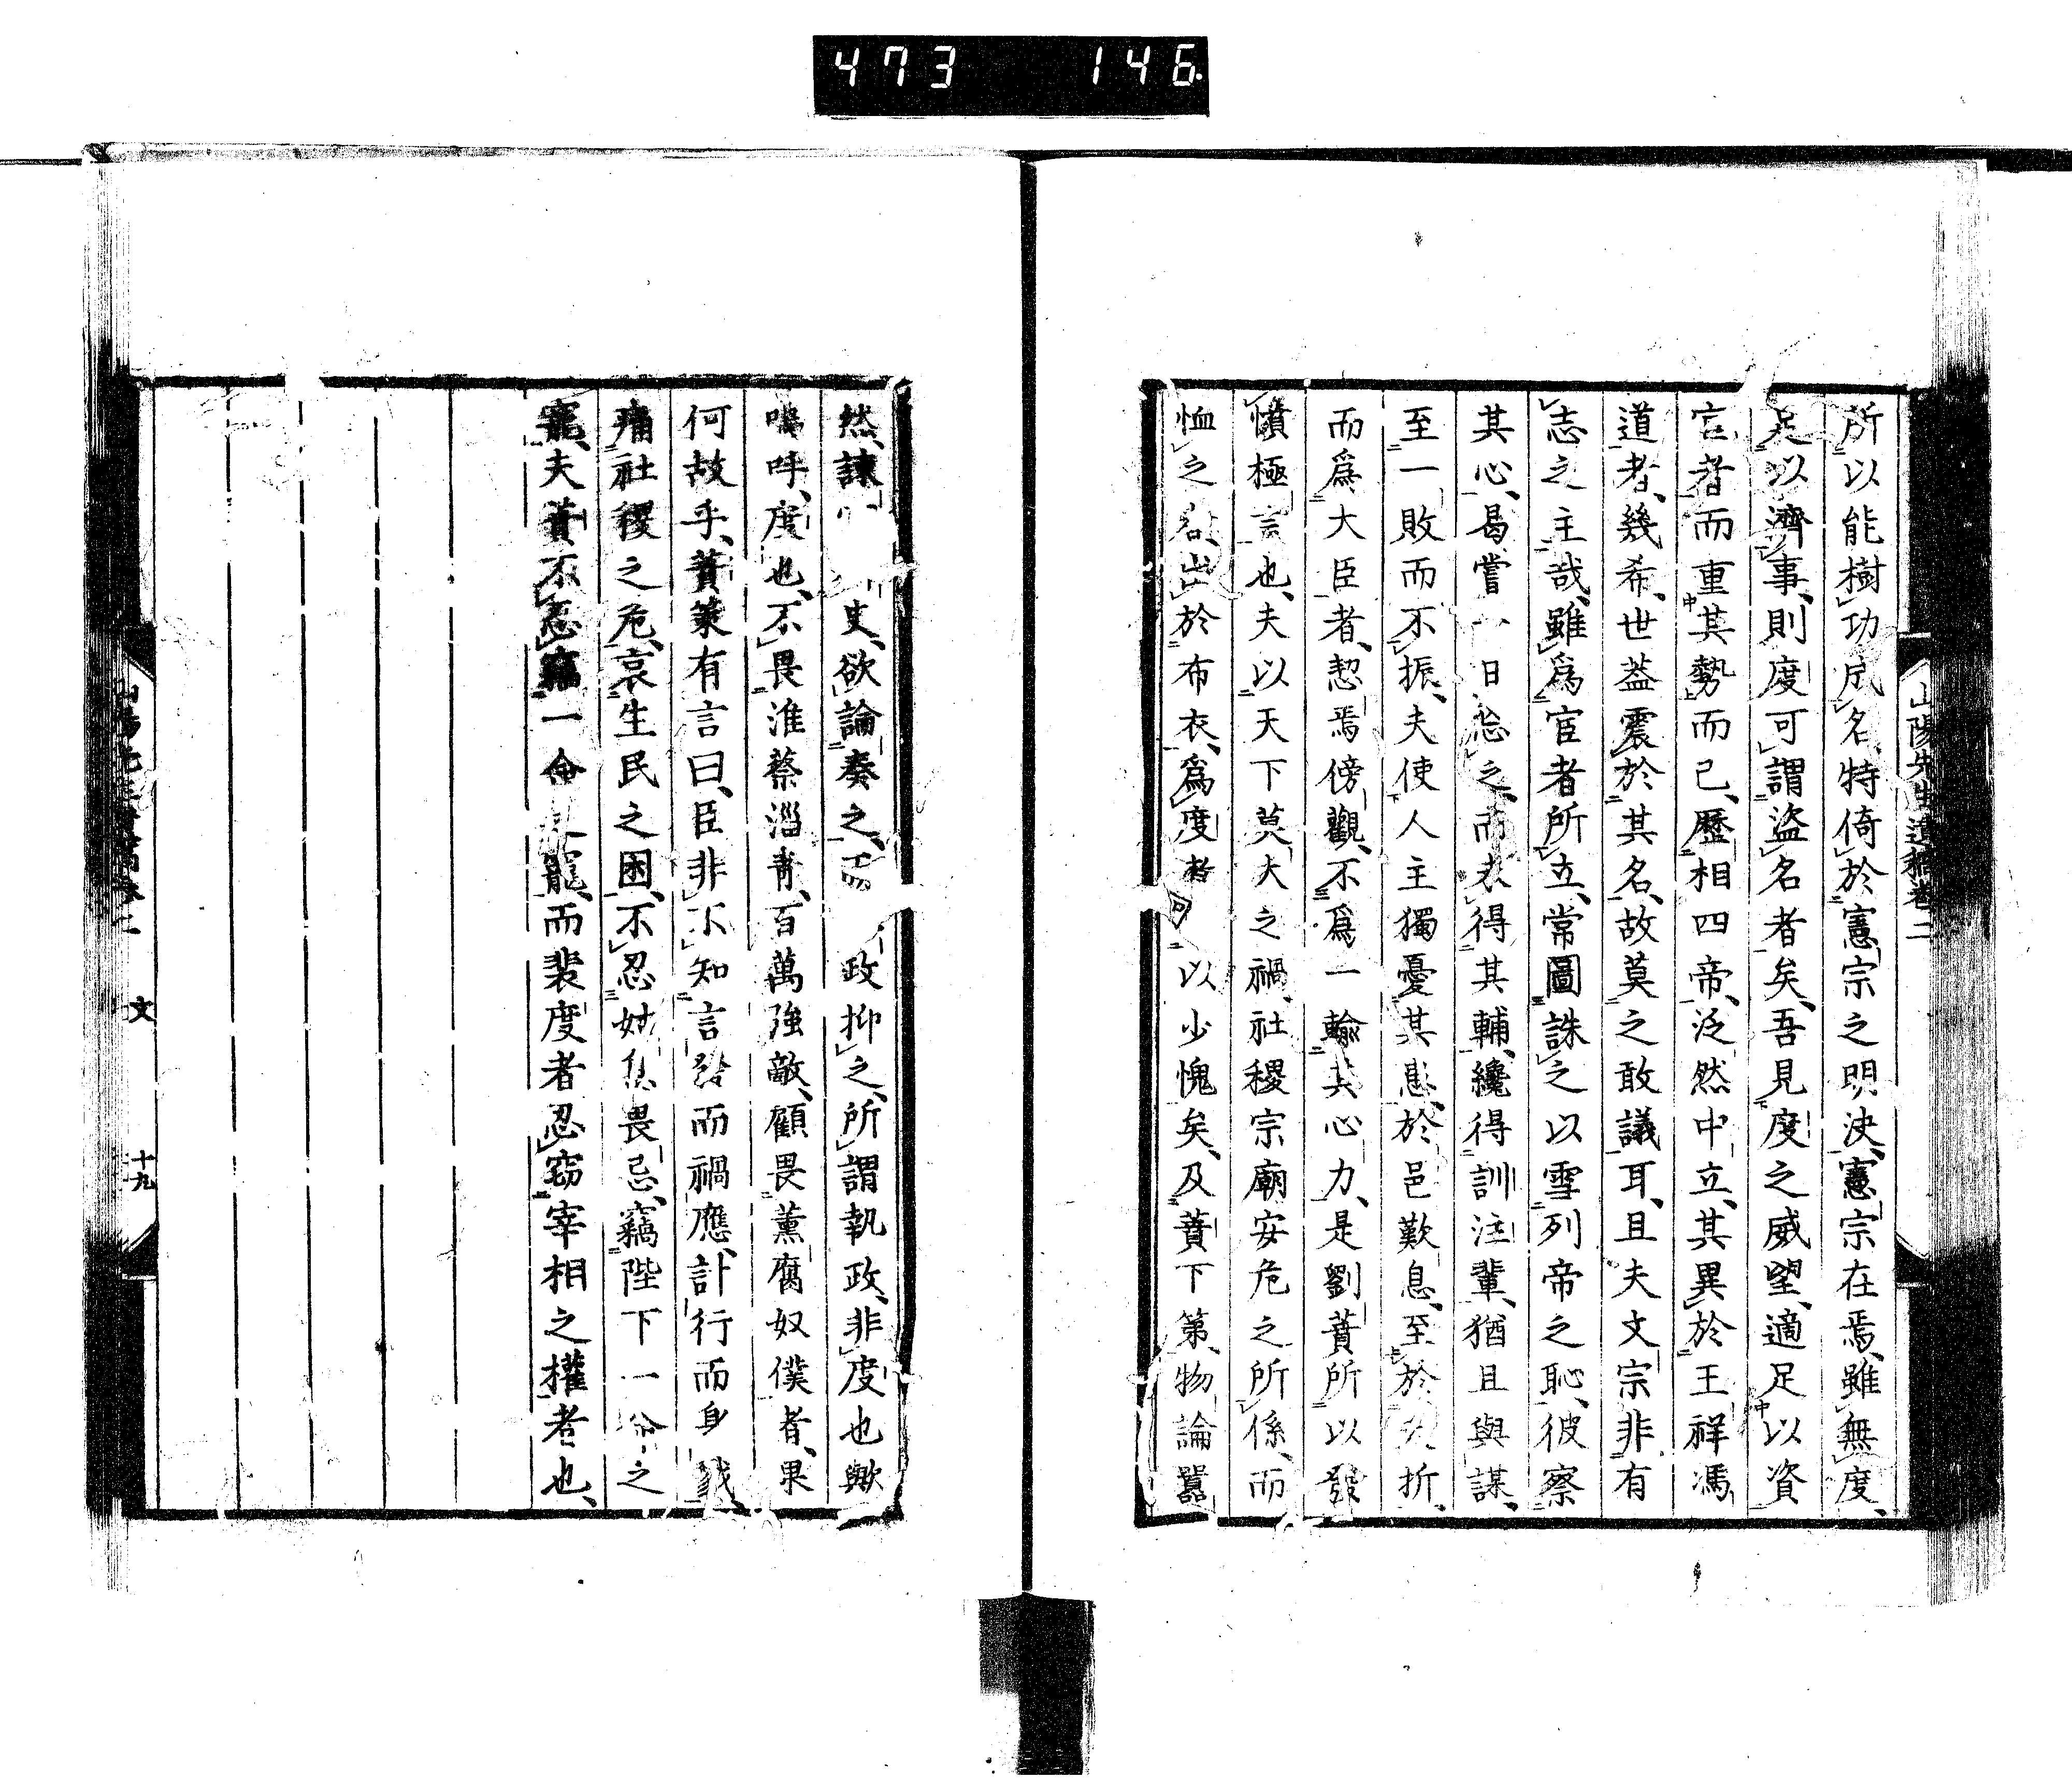 473 146
山陽先生遺稿卷二
所以能樹功成名、特倚於憲宗之明決、憲宗在焉、雖無度、
足以濟事、則度可謂盜名者矣、吾見度之威望、適足以資
宦者而重其勢而已、歷相四帝、泛然中立、其異於王祥馮
道者、幾希、世葢震於其名、故莫之敢議耳、且夫文宗非有
志之主哉、雖爲宦者所立、常圖誅之以雪列帝之恥、彼察
其心、曷嘗一日忘之、而未得其輔、纔得訓注輩、猶且與謀、
至一敗而不振、夫使人主獨憂其患、於邑歎息、至於 折、
而爲大臣者、恝焉傍觀、不爲一輸其心力、是劉蕡所以發
憤極言也、夫以天下莫大之禍、社稷宗廟安危之所係、而
恤之 出於布衣、爲度者可以少愧矣、及蕡下第、物論囂
然、諫 史、欲論奏之、而 政抑之、所謂執政、非度也歟
嗚呼、度也、不畏淮蔡淄青、百萬強敵、顧畏薰腐奴僕者、果
何故乎、蕡策有言曰、臣非不知言發而禍應、計行而身戮、
痛社稷之危、哀生民之困、不忍姑息畏忌、竊陛下一命之
寵、夫蕡不忍竊一命 寵、而裴度者忍窃宰相之權者也、
文 十九